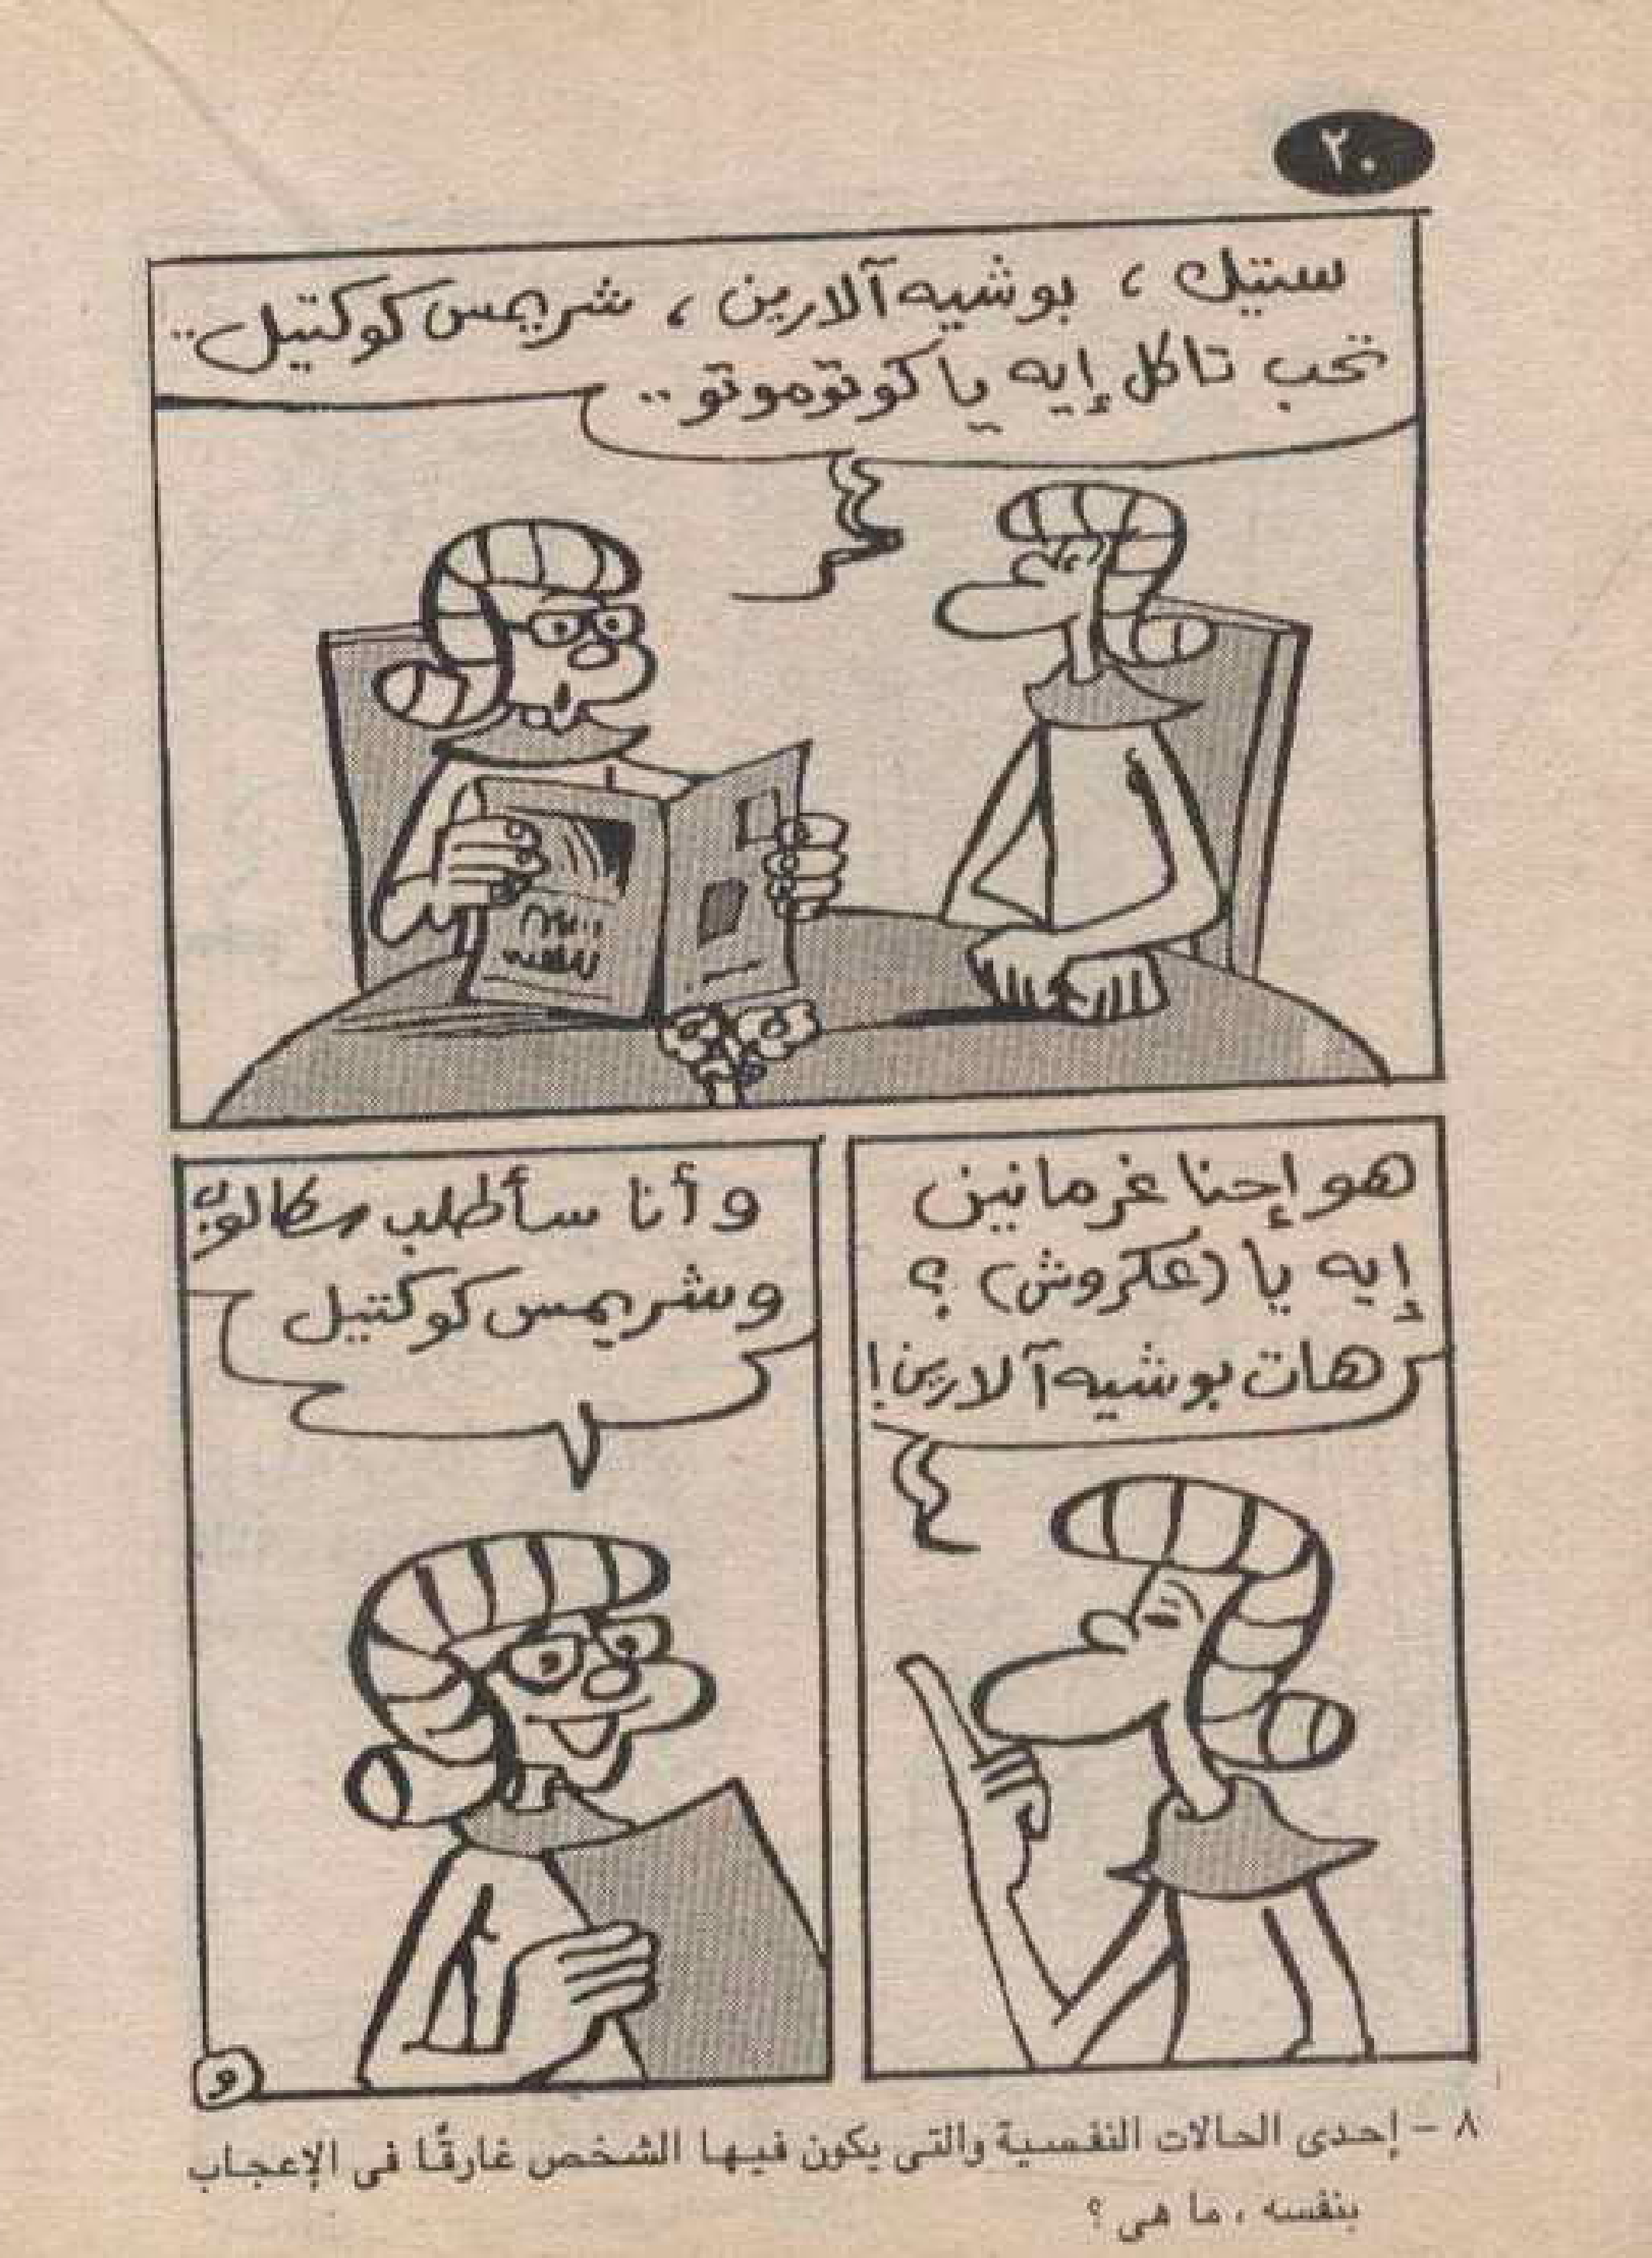 ٢٠
ستيك ، بوشيه آلارين ، شريمس كوكتيل..
تحب تاكل إيه يا كوتوموتو..
هو إحنا غرمانين
إيه يا (عكروش) ؟
هات بوشيه آلارين !
وأنا سأطلب سكالوب
وشريمس كوكتيل
و
٨ – إحدى الحالات النفسية والتى يكون فيها الشخص غارقًا فى الإعجاب
بنفسه ، ما هى ؟